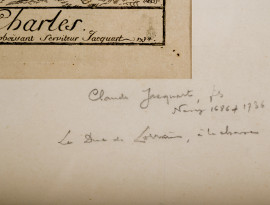 Charles.
obéissant Serviteur Jacquart
Claude Jacquart, fs
Nancy 1686 + 1736
Le Duc de Lorraine, à la chasse